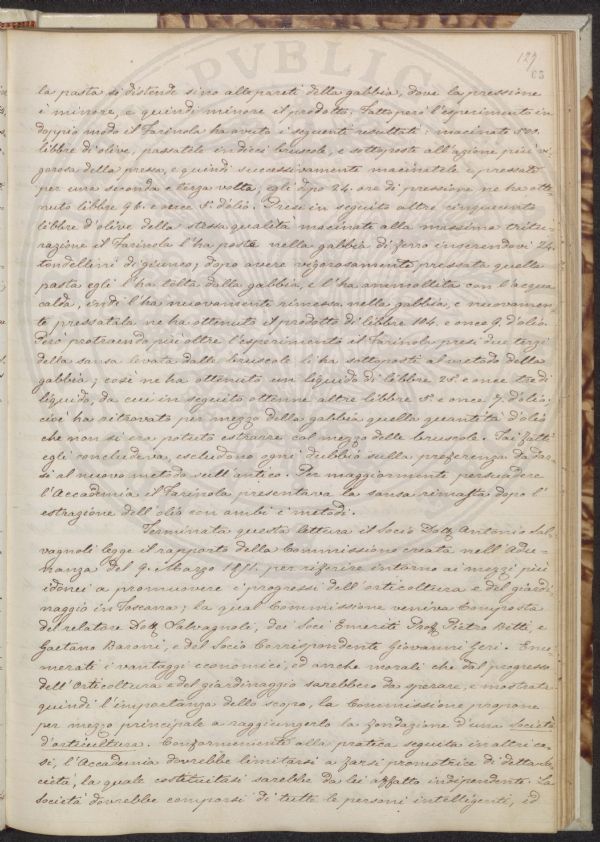 127
63
la pasta si distende sino alle pareti della gabbia, dove la pressione
è minore, e quindi minore il prodotto. Fatto però l'esperimento in
doppio modo il Farinola ha avuto i seguenti resultati: macinate 500.
libbre di olive, passatele in dieci bruscole, e sottoposte all'azione più vi-
gorosa della pressa, e quindi successivamente macinatele e pressate
per una seconda e terza volta, egli dopo 24. ore di pressione ne ha otte-
nuto libbre 96. e once 8. d'olio. Presi in seguito altre cinquecento
libbre d'olive della stessa qualità macinate alla massima tritu-
razione il Farinola l'ha poste nella gabbia di ferro inserendovi 24.
tondellini di giunco, dopo avere vigorosamente pressata quella
pasta egli l'ha tolta dalla gabbia, e l'ha ammollita con l'acqua
calda, indi l'ha nuovamente rimessa nella gabbia, e nuovamen-
te pressatala ne ha ottenuto il prodotto di libbre 104. e once 9. d'olio.
Però protraendo più oltre l'esperimento il Farinola presi due terzi
della sansa levata dalle bruscole li ha sottoposti al metodo della
gabbia, e così ne ha ottenuto un liquido di libbre 28. e once tre di
liquido, da cui in seguito ottenne altre libbre 8. e once 7. d'olio:
cioè ha ritrovato per mezzo della gabbia quella quantità d'olio
che non si era potuto estrarre col mezzo delle bruscole. Tai fatti
egli concludeva, escludono ogni dubbio sulla preferenza da dar-
si al nuovo metodo sull'antico. Per maggiormente persuadere
l'Accademia il Farinola presentava la sansa rimasta dopo l'
estrazione dell'olio con ambi i metodi.
Terminata questa lettura il Socio Dott. Antonio Sal-
vagnoli legge il rapporto della Commissione creata nell'Adu-
nanza del 9. Marzo 1851. per riferire intorno ai mezzi più
idonei a promuovere i progressi dell'orticoltura e del giardi-
naggio in Toscana; la qual Commissione veniva composta
del relatore Dott. Salvagnoli, dei Soci Emeriti Prof. Pietro Betti, e
Gaetano Baroni, e del Socio Corrispondente Giovanni Geri. Enu-
merati i vantaggi economici, ed anche morali che dal progresso
dell'Orticoltura e del giardinaggio sarebbero da sperare, e mostrata
quindi l'importanza dello scopo, la Commissione propone
per mezzo principale a raggiungerlo la fondazione d'una Società
d'orticultura. Conformemente alla pratica seguita in altri ca-
si, l'Accademia dovrebbe limitarsi a farsi promotrice di detta So-
cietà, la quale costituitasi sarebbe da lei affatto indipendente. La
Società dovrebbe comporsi di tutte le persone intelligenti, ed